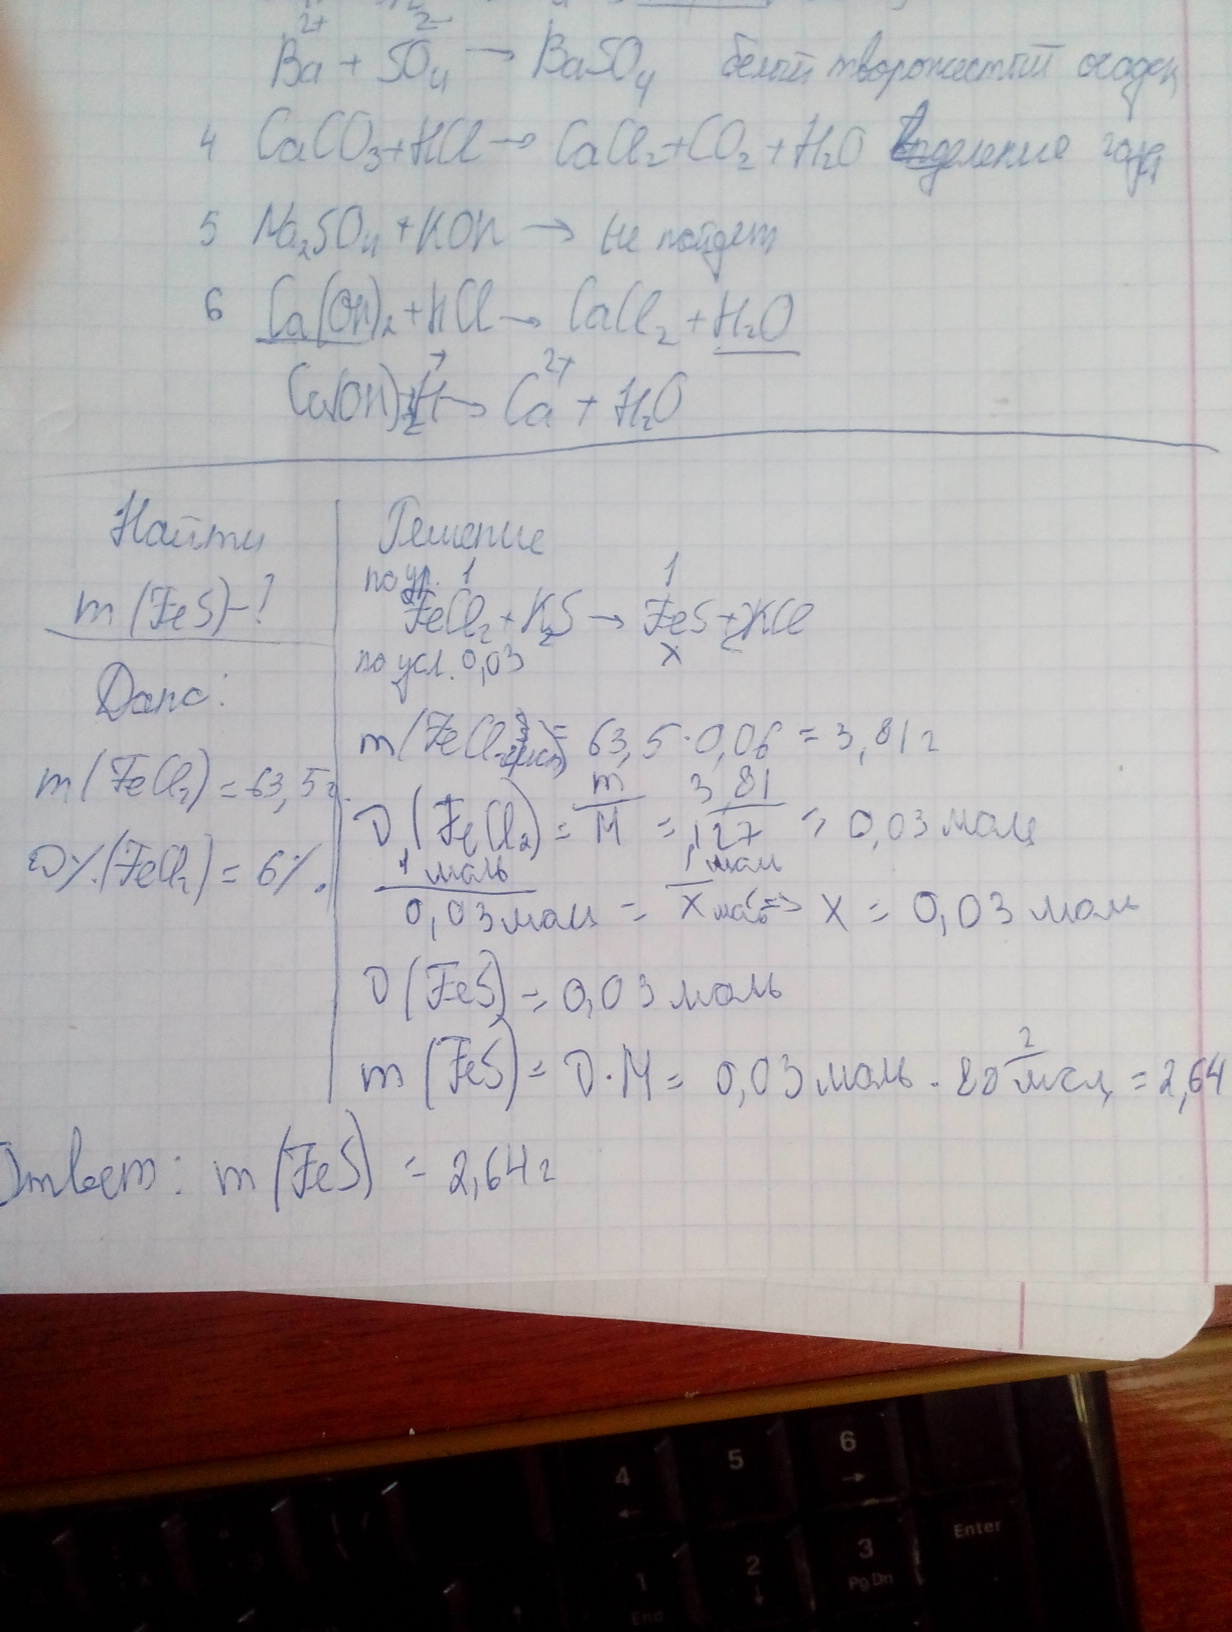 Ba²⁺ + SO₄²⁻ → BaSO₄ белый творожистый осадок
4 CaCO₃+HCl → CaCl₂+CO₂+H₂O Выделение газа
5 Na₂SO₄+KOH → не пойдет
6 Ca(OH)₂+HCl → CaCl₂+H₂O
Ca(OH)₂+H⁺ → Ca²⁺+H₂O
Найти
m(FeS)-?
Дано:
m(FeCl₂)=63,5г.
ω%(FeCl₂)=6%.
Решение
по ур. 1 1
FeCl₂+K₂S → FeS+2KCl
по усл. 0,03 x
m(FeCl₂)= 63,5·0,06=3,81г
ν(FeCl₂)= m/M = 3,81/127 = 0,03моль
1 моль/0,03моль = 1моль/x моль => x = 0,03моль
ν(FeS)=0,03моль
m(FeS)=ν·M= 0,03моль·88 г/моль=2,64
Ответ: m(FeS)=2,64г
4
←
5
6
→
Enter
1
End
2
↓
3
Pg Dn